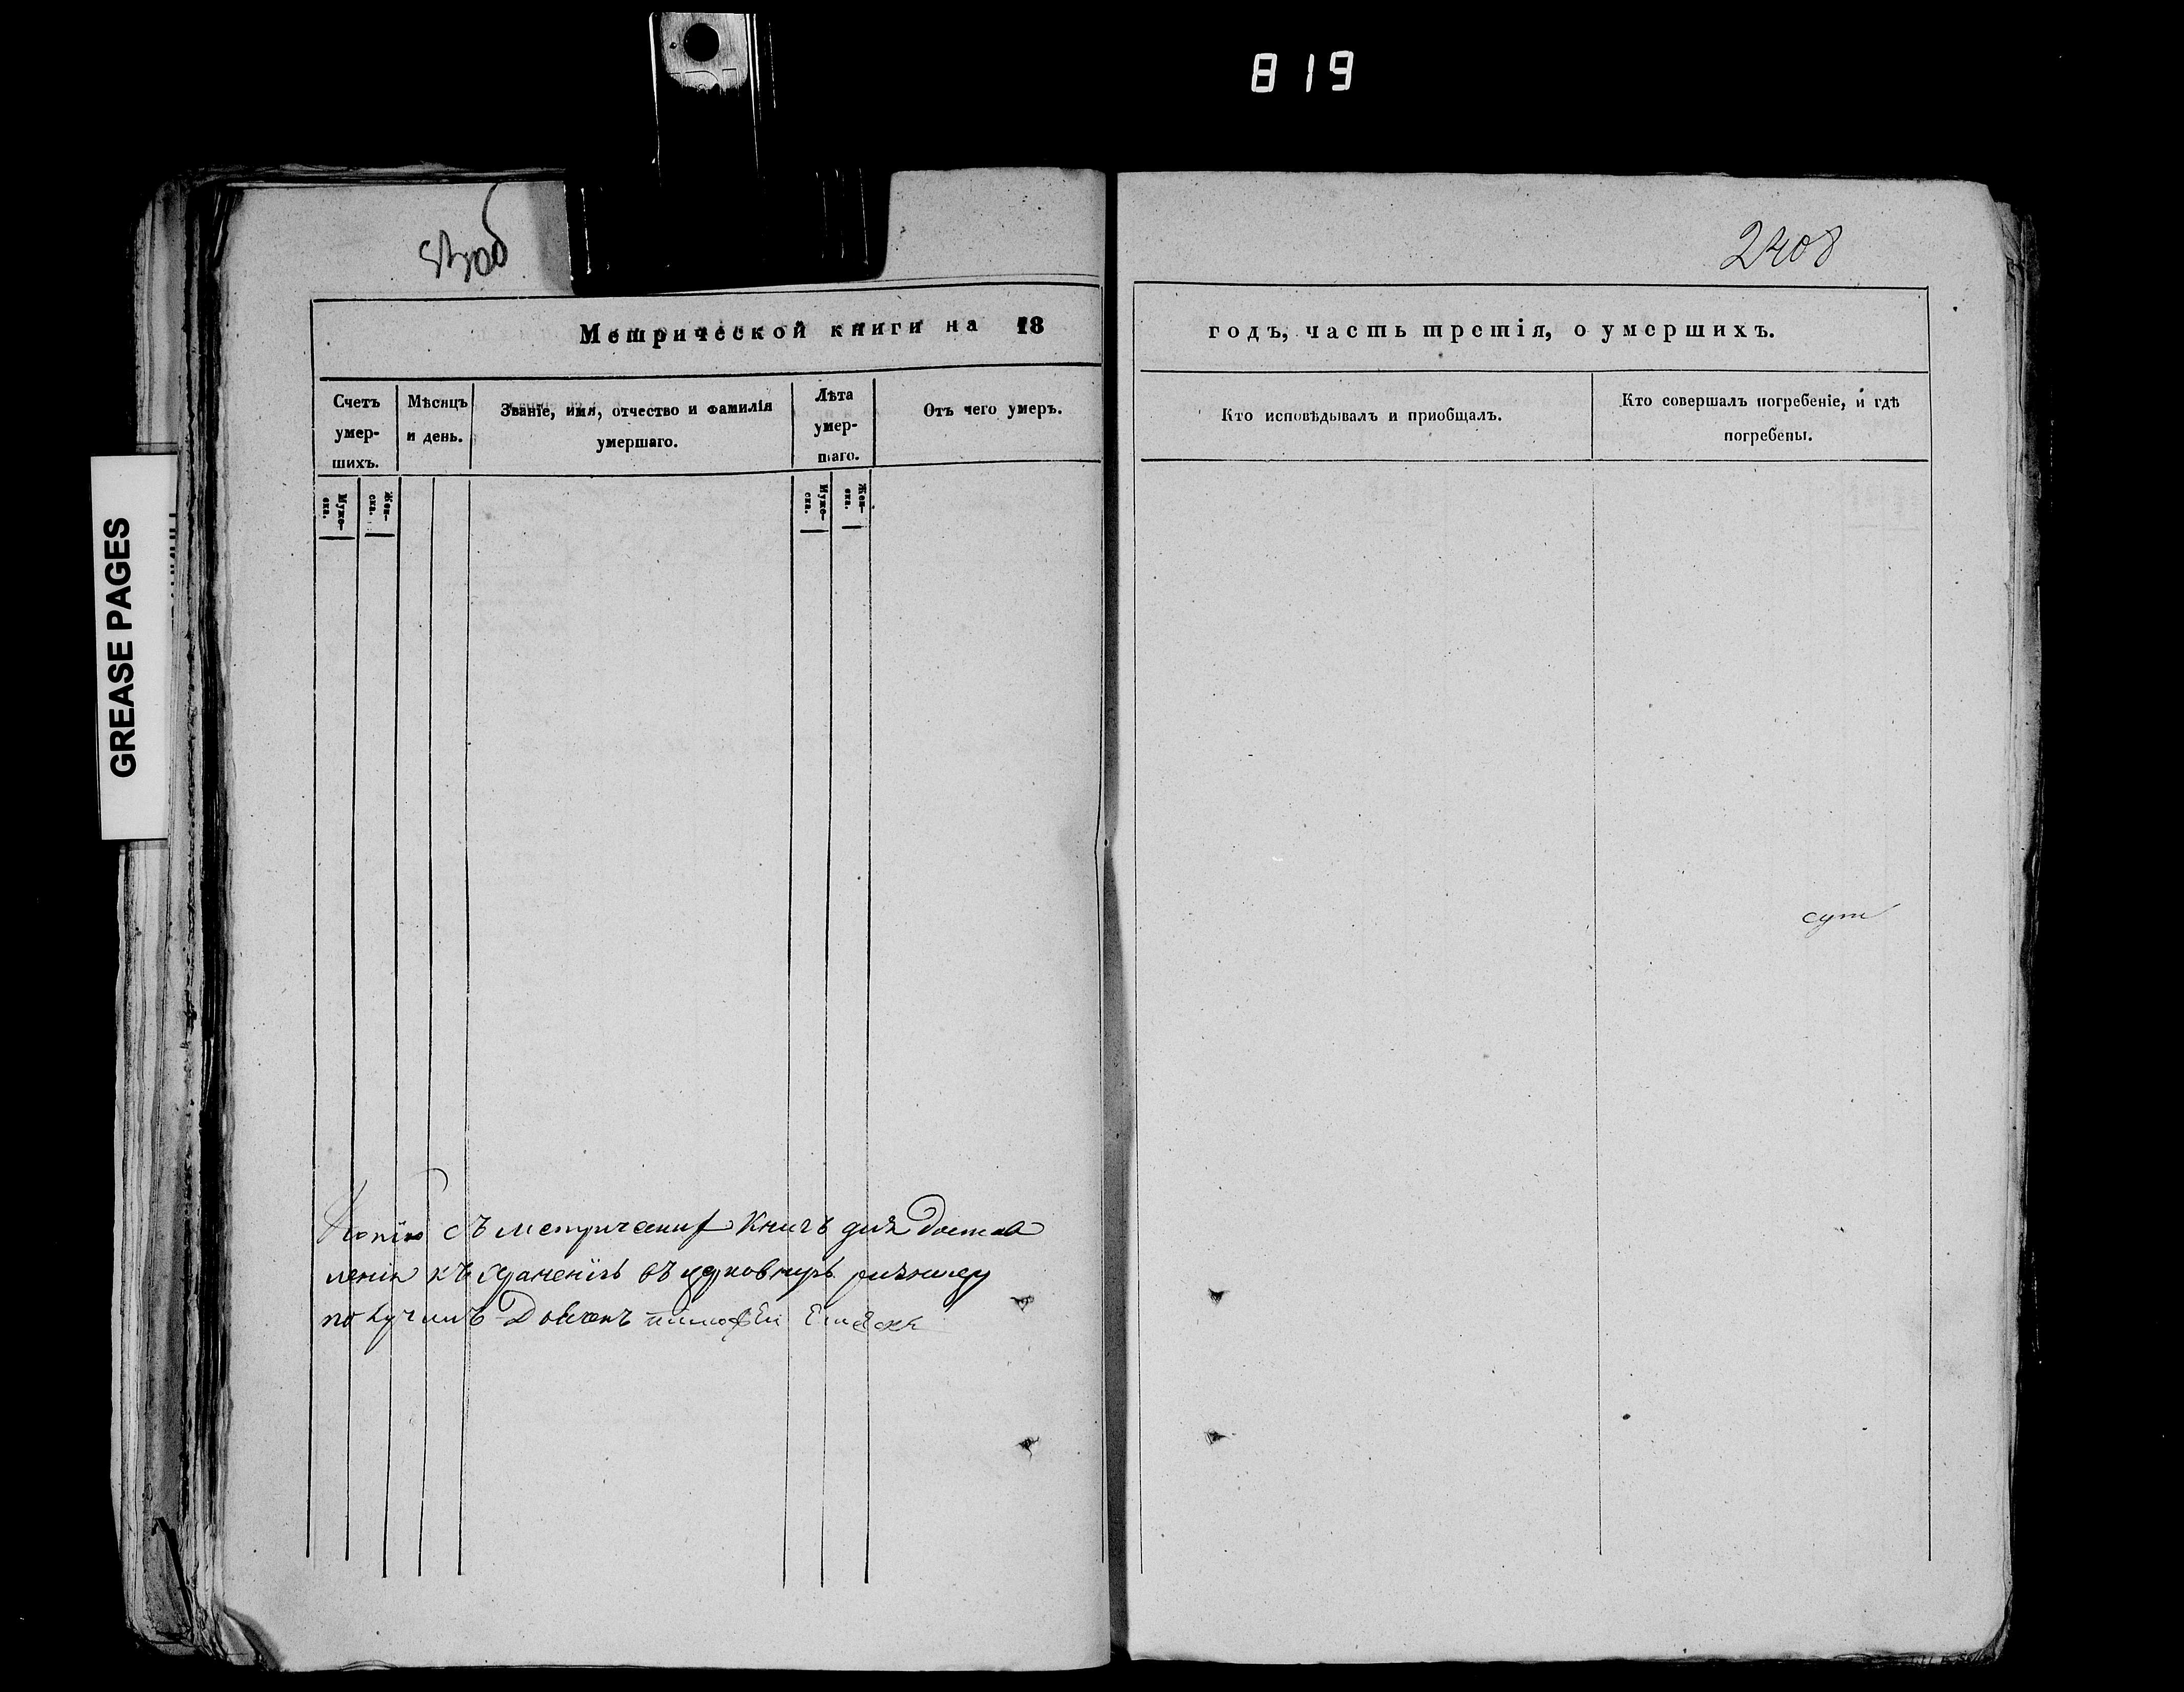 819
2408
Метрической книги на 18
годъ, часть третія, о умершихъ.
Счетъ умер-шихъ.
Мѣсяцъ и день.
Званіе, имя, отчество и фамилія умершаго.
Лѣта умер-шаго.
Отъ чего умеръ.
Кто исповѣдывалъ и приобщалъ.
Кто совершалъ погребеніе, и гдѣ погребены.
Муже-ска.
Жен-ска.
Муже-ска.
Жен-ска.
GREASE PAGES
сут
Копію съ метрическихъ Книгъ для достав
ленія къ храненію въ церковную ризницу
получилъ Дьяконъ